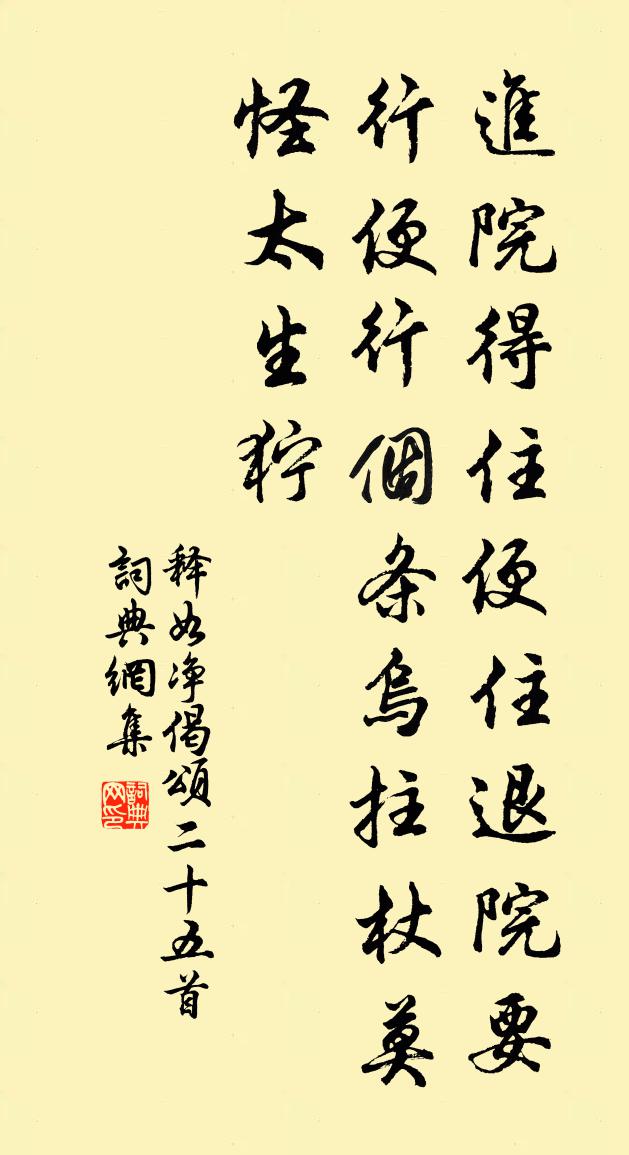 進院得住便住退院要
行便行個条烏拄杖莫
怪太生狞
释如净偈頌二十五首
詞典網集
詞典网印